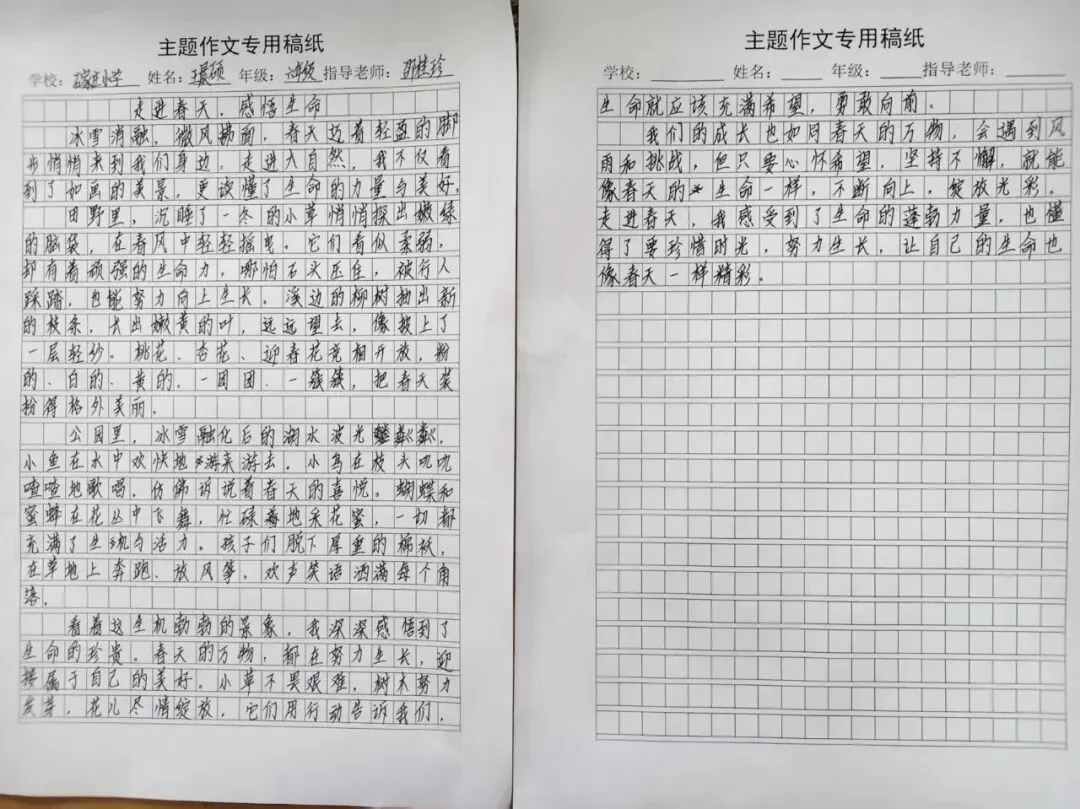 主题作文专用稿纸
学校： 小学 姓名：王硕 年级：六年级 指导老师：邵桂珍
走进春天，感悟生命
冰雪消融，微风拂面，春天迈着轻盈的脚
步悄悄来到我们身边。走进大自然，我不仅看
到了如画的美景，更读懂了生命的力量与美好。
田野里，沉睡了一冬的小草悄悄探出嫩绿
的脑袋，在春风中轻轻摇曳。它们看似柔弱，
却有着顽强的生命力，哪怕石头压住，被行人
踩踏，也能努力向上生长。溪边的柳树抽出新
的枝条，长出嫩黄的叶，远远望去，像披上了
一层轻纱。桃花、杏花、迎春花竞相开放，粉
的、白的、黄的，一团团、一簇簇，把春天装
扮得格外美丽。
公园里，冰雪融化后的湖水波光粼粼，
小鱼在水中欢快地游来游去。小鸟在枝头叽叽
喳喳地歌唱，仿佛诉说着春天的喜悦。蝴蝶和
蜜蜂在花丛中飞舞，忙碌着地采花蜜，一切都
充满了生机与活力。孩子们脱下厚重的棉袄，
在草地上奔跑、放风筝，欢声笑语洒满每个角
落。
看着这生机勃勃的景象，我深深感悟到了
生命的珍贵。春天的万物，都在努力生长，迎
接属于自己的美好。小草不畏艰难，树木努力
发芽，花儿尽情绽放，它们用行动告诉我们，
主题作文专用稿纸
学校： 姓名： 年级： 指导老师：
生命就应该充满希望，勇敢向前。
我们的成长也如同春天的万物，会遇到风
雨和挑战，但只要心怀希望，坚持不懈，就能
像春天的生命一样，不断向上，绽放光彩。
走进春天，我感受到了生命的蓬勃力量，也懂
得了要珍惜时光，努力生长，让自己的生命也
像春天一样精彩。